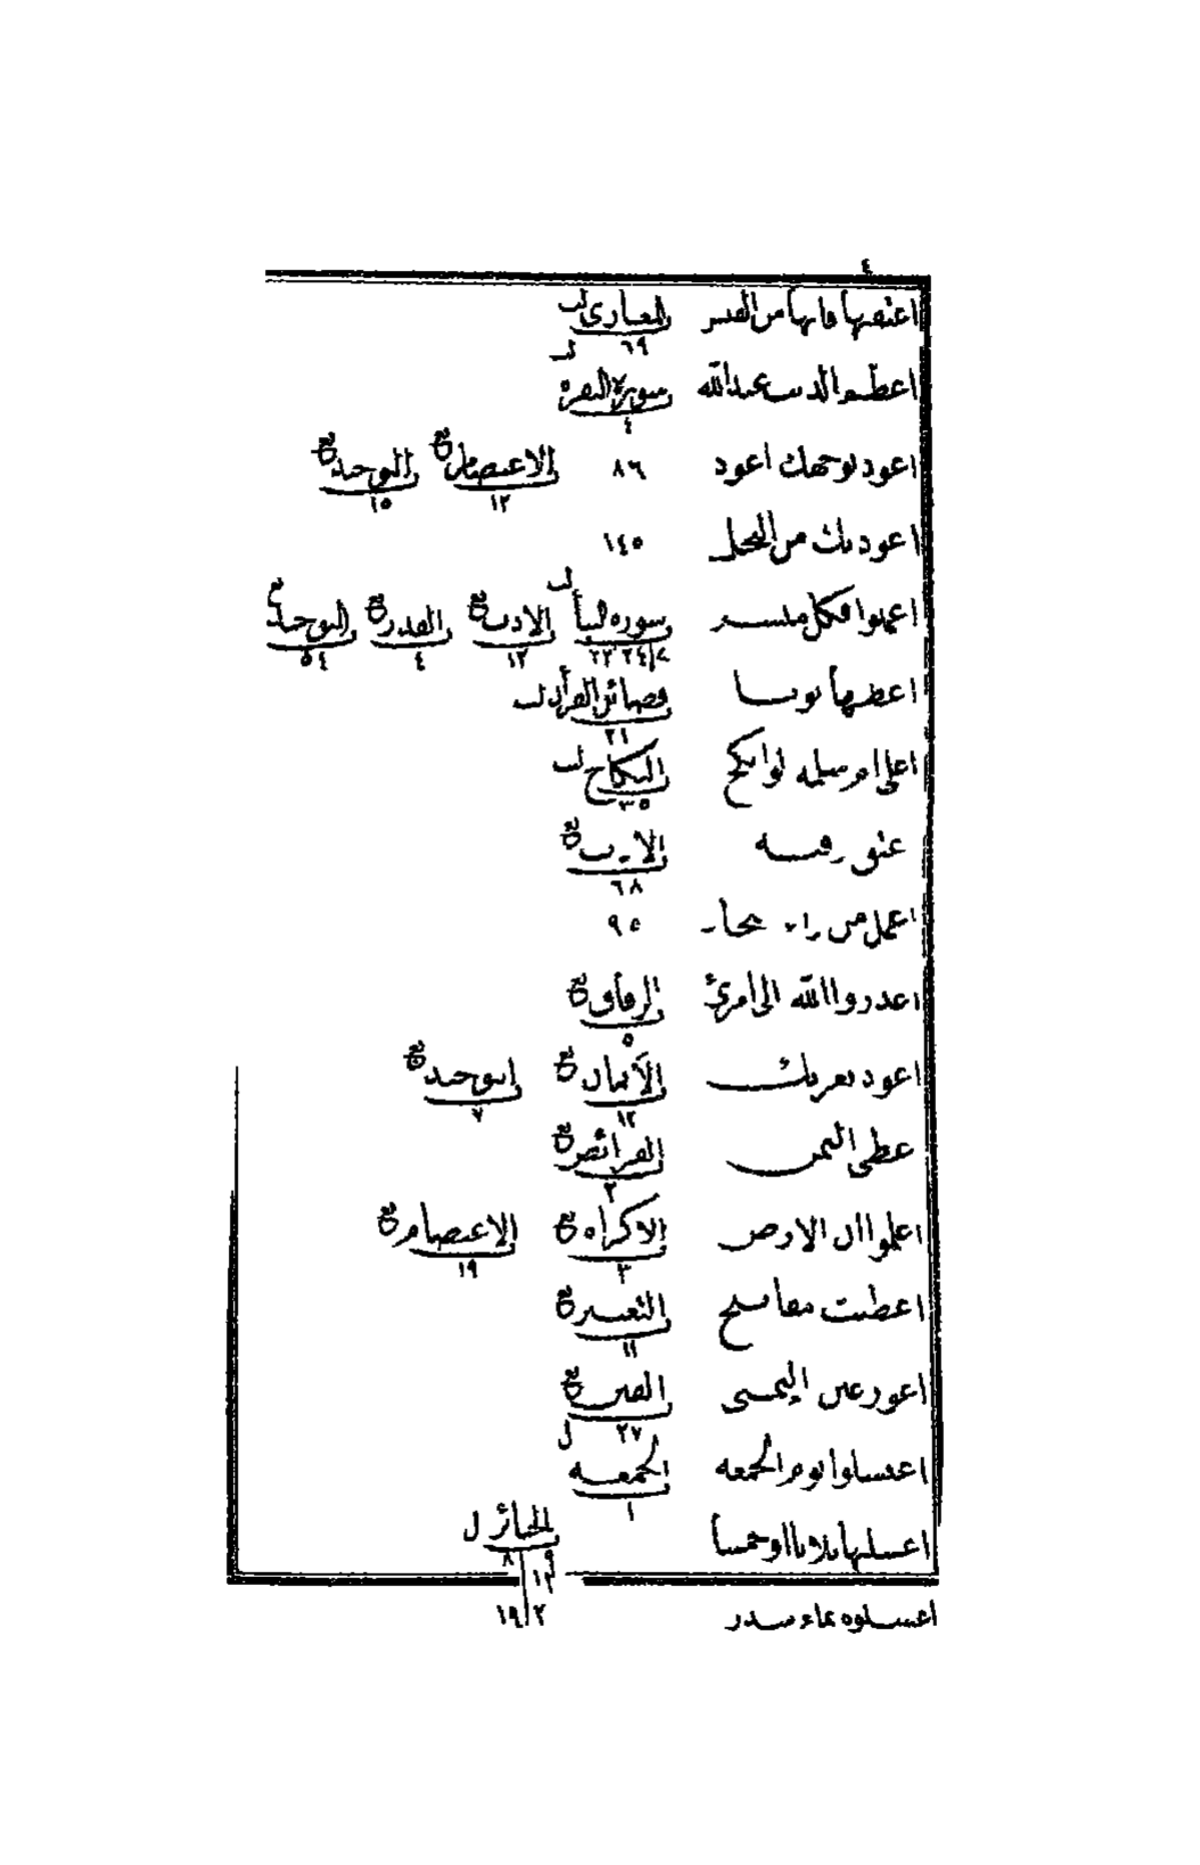 ٤
اعتقها فانها من المعارى ل ٦٩
اعظم الذنب عند الله سورة البقره ل ٤
اعوذ بوجهك اعوذ ٨٦ الاعتصام ع ١٢ التوحيد ع ١٥
اعوذ بك من البخل ١٤٥
اعملوا فكل ميسر سوره ل ٧/٢٤ ٢٣ ٢٢ الادب ع ١٢ القدر ع ٤ التوحيد ع ٥٤
اعطها ثوبا فضائل القرآن ل ٢١
اعلى ام سلمه لو انكح النكاح ل ٣٥
عتق رقبه الادب ع ٦٨
اعمل من وراء بحار ٩٥
اعذر الله الى امرئ الرقاق ع ٥
اعوذ بعزتك الأيمان ع ١٢ التوحيد ع ٧
اليمن الفرائض ع ٢
اعلموا ان الارض الاكراه ع ٣ الاعتصام ع ١٩
اعطيت مفاتيح التعبير ع ١١
اعور عين اليمنى الفتن ع ٢٧
اغتسلوا يوم الجمعه الجمعه ل ١
اغسلنها ثلاثا او خمسا الجنائز ل ٨ ٩ ١٣
اغسلوه بماء وسدر ١٩/٢